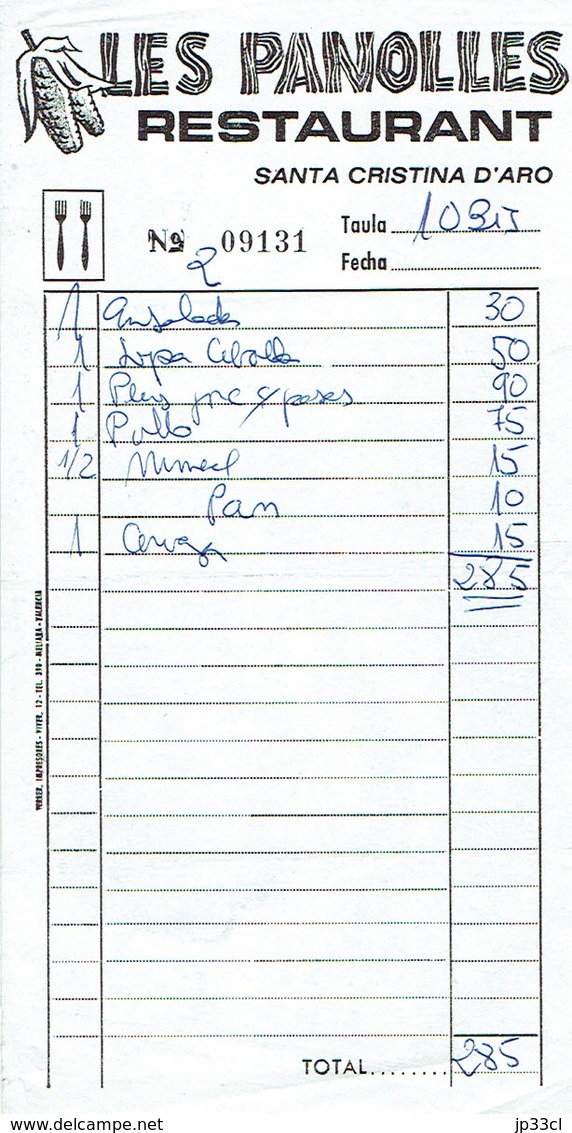 LES PANOLLES
RESTAURANT
SANTA CRISTINA D'ARO
Nº 09131
Taula 10 Bis
2
Fecha
1 Ansalada 30
1 Sopa Cebolla 50
1 Peus porc y pases 90
1 Pollo 75
1/2 Mineral 15
Pan 10
1 Cerveza 15
285
FERRER, IMPRESORES - VIVER, 12 - TEL. 390 - MELIANA - VALENCIA
TOTAL........ 285
delcampe.net
jp33cl